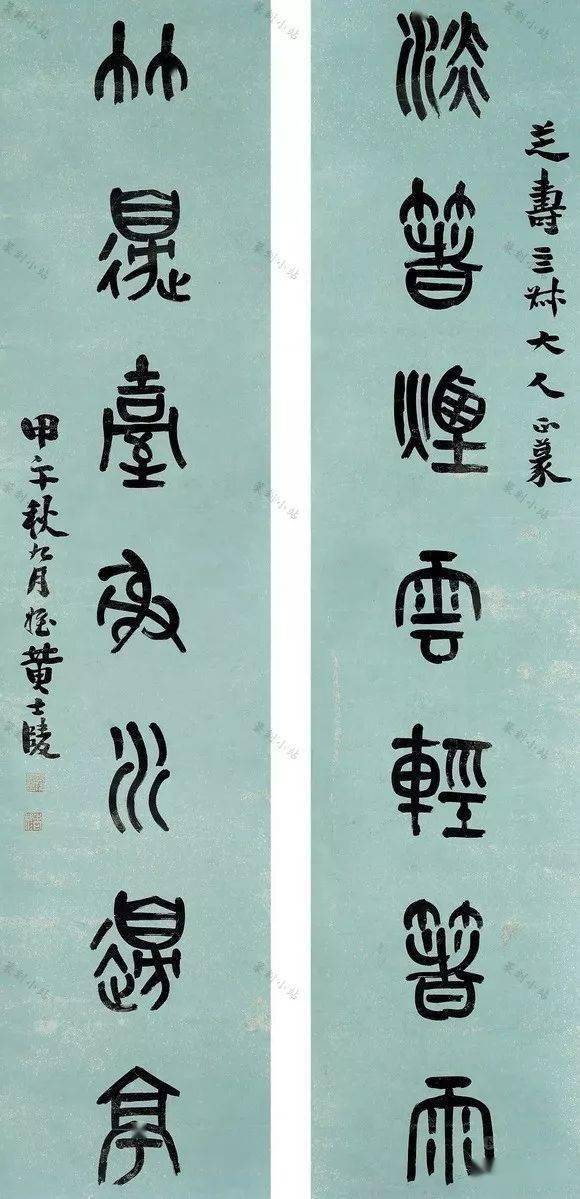 芝壽三叔大人正篆
淡箸煙雲輕箸雨
竹邊臺射水邊亭
甲午秋九月姪黃士陵
篆刻小站